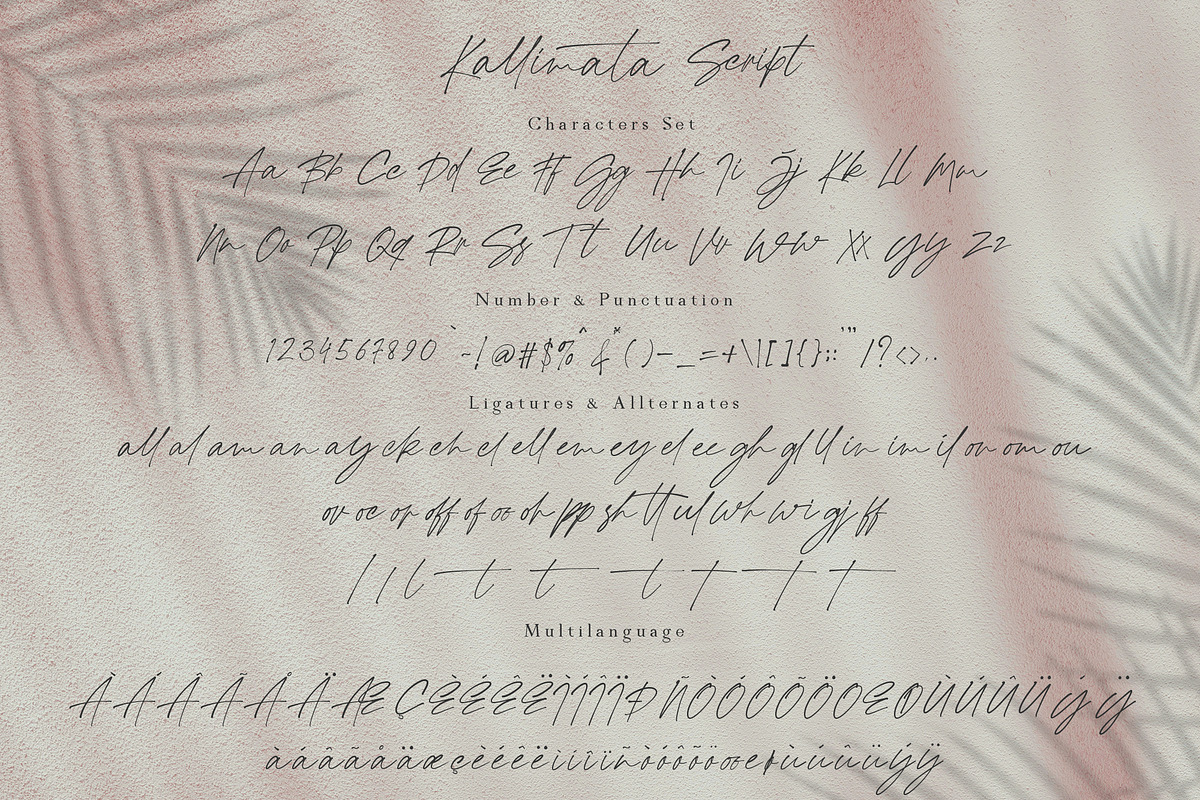 Kallimata Script
Characters Set
Aa Bb Cc Dd Ee Ff Gg Hh Ii Jj Kk Ll Mm
Nn Oo Pp Qq Rr Ss Tt Uu Vv Ww Xx Yy Zz
Number & Punctuation
1234567890 `~!@#$%^&*()-_=+\|[]{};:'"/?<>,.
Ligatures & Allternates
all al am an ay ck ch cl ell em ey el ec gh gl ll in im il on om ou
ov oc or off of oo oh pp sh tt ul wh wi gj ff
l l t t t t t t t
Multilanguage
ÀÁÂÃÅÄÆÇÈÉÊËÌÍÎÏÐÑÒÓÔÕÖŒØÙÚÛÜÝŸ
àáâãåäæçèéêëìíîïñòóôõöœøùúûüýÿ